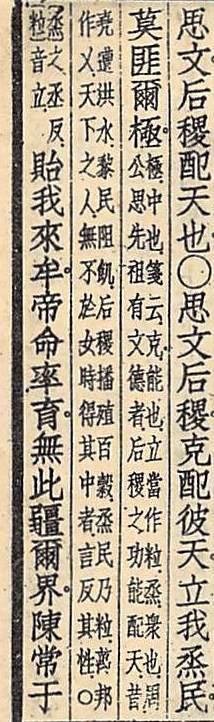 思文后稷配天也○思文后稷克配彼天立我烝民
莫匪爾極
極中也箋云克能也立當作粒烝衆也周
公思先祖有文德者后稷之功能配天昔
堯遭洪水黎民阻飢后稷播殖百穀烝民乃粒萬邦
作乂天下之人無不於女時得其中者言反其性○
烝之丞反
粒音立
貽我來牟帝命率育無此疆爾界陳常于